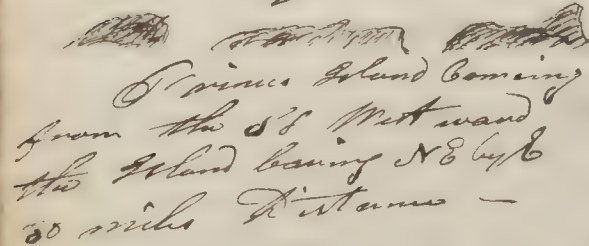 Princes Island Coming
from the S'd West ward
the Island bearing NE by E
30 miles Distance –